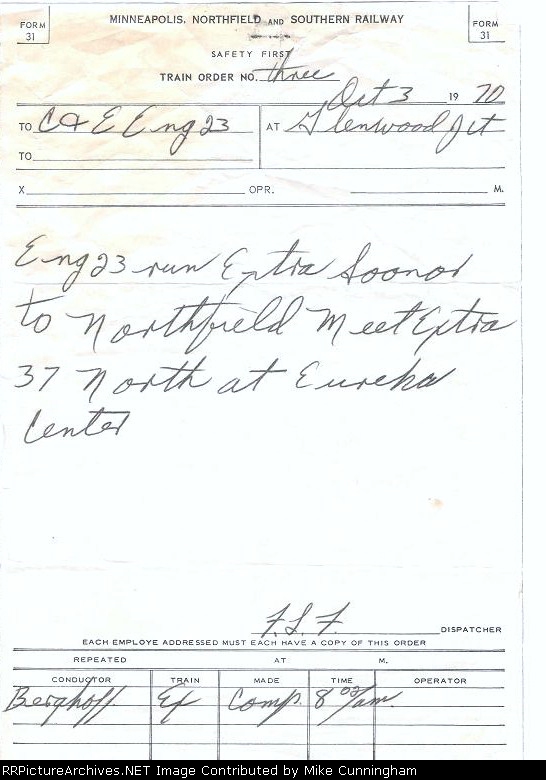 FORM 31
MINNEAPOLIS, NORTHFIELD AND SOUTHERN RAILWAY
FORM 31
SAFETY FIRST
TRAIN ORDER NO. three
Oct 3 1970
TO C & E Eng 23 AT Glenwood Jct
TO
X OPR. M.
Eng 23 run Extra
to Northfield Meet Extra
37 North at Eureka
Center
F.L.F. DISPATCHER
EACH EMPLOYE ADDRESSED MUST EACH HAVE A COPY OF THIS ORDER
REPEATED AT M.
CONDUCTOR TRAIN MADE TIME OPERATOR
Berghoff Ex Comp. 8 02/am.
RailPictureArchives.NET Image Contributed by Mike Cunningham